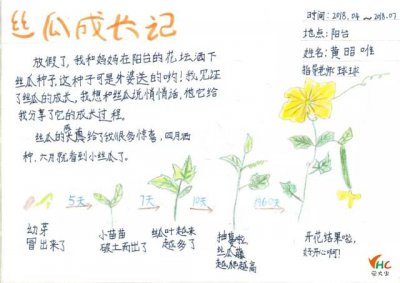 丝瓜成长记
时间:2018.04～2018.07
地点:阳台
姓名:黄昭唯
指导老师 球球
放假了,我和妈妈在阳台的花坛洒下
丝瓜种子,这种子可是外婆送的哟!我见证
了丝瓜的成长,我想和丝瓜说悄悄话,他它给
我分享了它的成长过程。
丝瓜的 给了我很多惊喜,四月洒
种,六月就看到小丝瓜了。
5天
7天
10天
60天
幼芽
冒出来了
小苗苗
破土而出了
丝叶越来
越多了
抽蔓啦,
丝瓜藤
越爬越高
开花结果啦,
好开心啊!
VHC